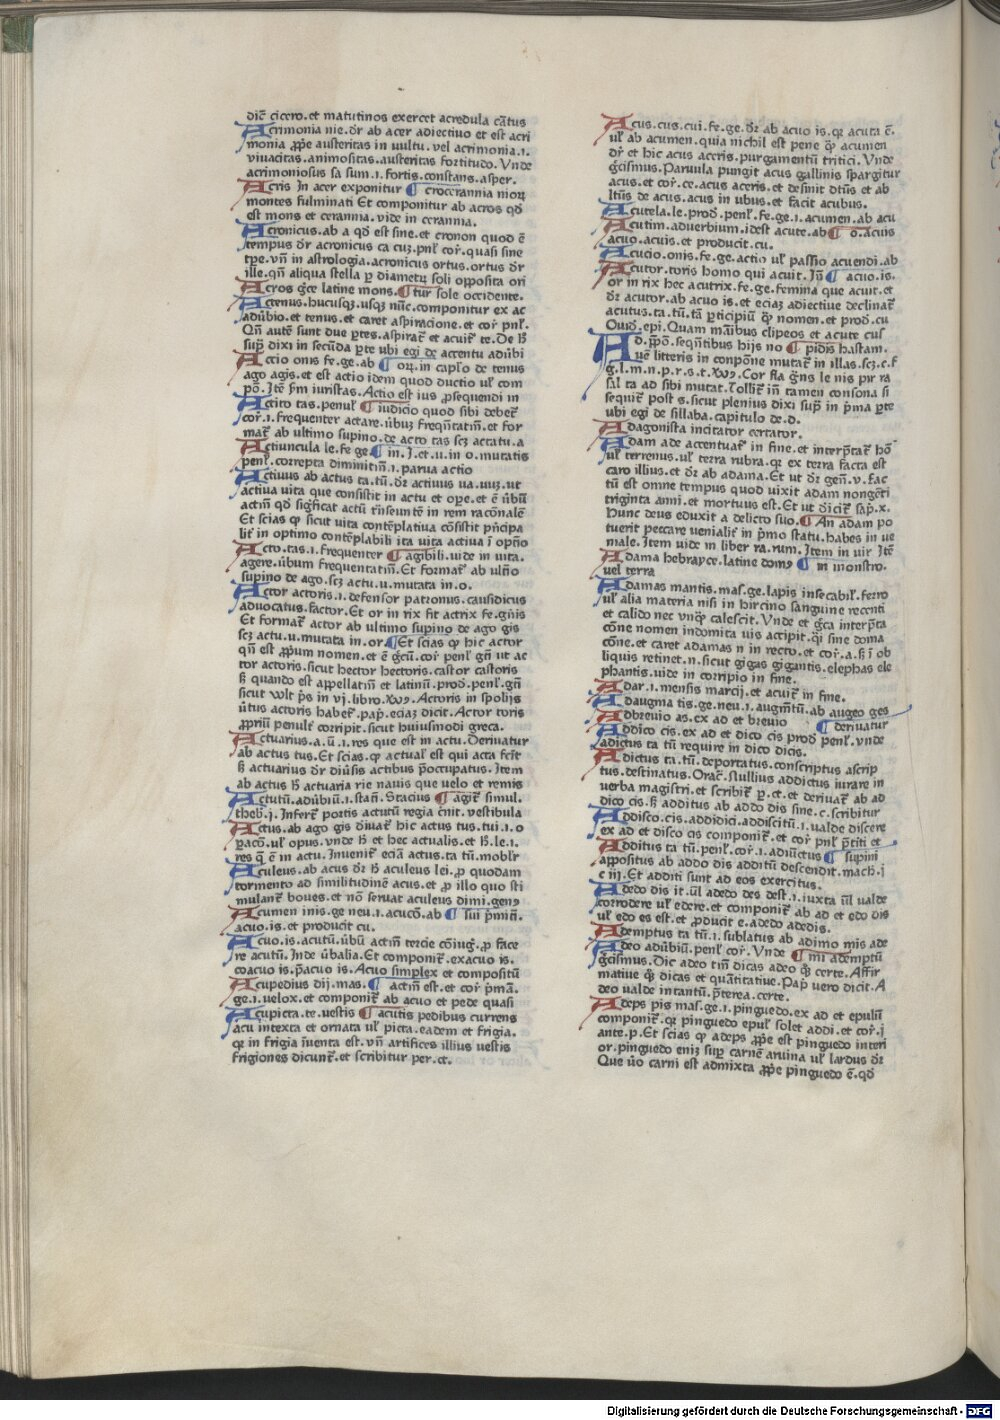 dic̄ cicero.et matutinos exercet acredula cātus
Acrimonia nie.dr̄ ab acer adiectiuo et est acri
monia ꝓp̄e austeritas in uultu.vel acrimonia.i.
viuacitas.animositas.austeritas fortitudo.Vnde
acrimoniosus sa sum.i.fortis.constans.asper.
Acris In acer exponitur ¶ crocerannia nioꝝ
montes fulminati Et componitur ab acros qđ
est mons et cerannia.vide in cerannia.
Acronicus.ab a qđ est sine.et cronon quod ē
tempus dr̄ acronicus ca cuꝫ.pnl̄ cor̄.quasi sine
tp̄e.vn̄ in astrologia.acronicus ortus.ortus dr̄
ille.qn̄ aliqua stella p diametꝝ soli opposita ori
Acros gͥce latine mons.¶tur sole occidente.
Actenus.hucusqꝫ.usqꝫ nūc.componitur ex ac
adūbio.et tenus.et caret aspiracione.et cor̄ pnl̄.
Qn̄ autē sunt due ꝑtes.aspirat̄ et acuit̄ te.De h̄
sup̄ dixi in secūda ꝑte ubi egi de accentu adūbi
Accio onis fe.ge.ab ¶ oꝝ.in cap̄lo de tenus
ago agis.et est actio idem quod ductio ul̄ com
pō.Itē ẜm iuristas.Actio est ius ꝓsequendi in
Actito tas.penul̄ ¶ iudicio quod sibi debet̄
cor̄.i.frequenter actare.ūbuꝫ freqn̄tatiū.et for
mat̄ ab ultimo supino.de acto tas scꝫ actatu.a
Actiuncula le.fe ge ¶ in.J.ct.u.in o.mutatis
penl̄.correpta diminitiū.i.parua actio
Actiuus ab actus ta.tū.dr̄ actiuus ua.uuꝫ.ut
actiua uita que consistit in actu et oꝑe.et ē ūbū
actiū qđ sig̅ficat actū trn̄seuntē in rem racōnalē
Et scias qͥ sicut uita contēplatiua cōsistit pͥncipa
lit̄ in optimo contēplabili ita uita actiua ī optīo
Acto.tas.i.frequenter ¶ agibili.uide in uita.
agere.ūbum frequentatiū.Et format̄ ab ultīo
supino de ago.scꝫ actu.u.mutata in.o.
Actor actoris.i.defensor patronus.causidicus
advocatus.factor.Et or in rix fit actrix fe.gn̄is
Et format̄ actor ab ultimo supino de ago gis
scꝫ actu.u.mutata in.or.¶Et scias qͥ hic actor
qn̄ est ꝓp̄um nomen.et ē gͥcū.cor̄ penl̄ gn̄ ut ac
tor actoris.sicut hector hectoris.castor castoris
ẜ quando est appellatiū et latinū.prod.penl̄.gn̄
sicut uult p̄s in vj.libro.Actoris in spolijs
ūtus actoris habet̄.pap̄.eciaꝫ dicit.Actor toris
ꝓpriū penult̄ corripit.sicut huiusmodi greca.
Actuarius.a.ū.i.res que est in actu.Derivatur
ab actus tus.Et scias.qͥ actual̄ est qui acta fcīt
ẜ actuarius dr̄ diūsis actibus p̄occupatus.Item
ab actus h̄ actuaria rie nauis que uelo et remis
Actutū.adūbiū.i.statī.Stacius ¶ agit̄ simul.
theb.j.Infert̄ portis actutū regia c̄nit.vestibula
Actus.ab ago gis d̄iuat̄ hic actus tus.tui.i.o
ꝑacō.ul̄ opus.vnde h̄ et hec actualis.et h̄.le.i.
res q̄ ē in actu.Inuenit̄ eciā actus.ta tū.mobl̄r
Aculeus.ab acus dr̄ h̄ aculeus lei.ꝓ quodam
tormento ad similitudinē acus.et ꝓ illo quo sti
mulant̄ boues.et nō seruat aculeus dimi.genꝰ
Acumen inis.ge neu.i.acucō.ab ¶ sui pͥmiti.
acuo.is.et producit cu.
Acuo.is.acutū.ūbū actiū tercie cōiug̅.ꝓ face
re acutū.Inde ūbalia.Et componit̄.exacuo is.
coacuo is.p̄acuo is.Acuo simplex et compositū
Acupedius dij.mas.¶ actiū est.et cor̄ pͥmā.
ge.i.uelox.et componit̄ ab acuo et pede quasi
Acupicta.te.vestis ¶ acutis pedibus currens
acu intexta et ornata ul̄ picta.eadem et frigia.
qꝛ in frigia īuenta est.vn̄ artifices illius uestis
frigiones dicunt̄.et scribitur per.ct.
Acus.cus.cui.fe.ge.dr̄ ab acuo is.qꝛ acuta ē.
ul̄ ab acumen.quia nichil est pene qͥ acumen
dr̄ et hic acus aceris.purgamentū tritici.Vnde
gͥcismus.Paruula pungit acus gallinis spargitur
acus.et cor̄.ce.acus aceris.et desinit dtūs et ab
ltūs de acus.acus in ubus.et facit acubus.
Acutela.le.prod̄.penl̄.fe.ge.i.acumen.ab acu
Acutim.adverbium.idest acute.ab¶ o.acuis
acuo.acuis.et producit.cu.
Acucio.onis.fe.ge.actio ul̄ passio acuendi.ab
Acutor.toris homo qui acuit.In̄ ¶ acuo.is.
or in rix hec acutrix.fe.ge.femina que acuit.et
dr̄ acutor.ab acuo is.et eciaꝫ adiectiue declinat̄
acutus.ta.tū.tā ꝑticipiū qͥ nomen.et prod̄.cu
Ouid̄.epi.Quam maībus clipeos et acute cus
Ad.pꝓō.seqn̄tibus hijs no ¶ pidīs hastam.
uē litteris in conpōne mutat̄ in illas.scꝫ.c.f
g.l.m.n.p.r.s.t.Cor fla ḡns le nis pir ra
sal ta ad sibi mutat.Tollit̄ in̄ tamen consona si
sequit̄ post s.sicut plenius dixi sup̄ in pͥma ꝑte
ubi egi de sillaba.capitulo de.d.
Adagonista incitator certator.
Adam ade accentuat̄ in fine.et interp̄tat̄ hō
ul̄ terrenus.ul̄ terra rubra.qꝛ ex terra facta est
caro illius.et dr̄ ab adama.Et ut dr̄ gen̄.v.fac
tū est omne tempus quod uixit adam nongēti
triginta anni.et mortuus est.Et ut dicit̄ sap̄.x.
Hunc deus eduxit a delicto suo.¶An adam po
tuerit peccare uenialit̄ in pͥmo statu.habes in ue
male.Item uide in liber ra.rum.Item in uir Itē
Adama hebrayce.latine domꝰ ¶ in monstro.
vel terra
Adamas mantis.mas.ge.lapis insecabil̄.ferro
ul̄ alia materia nisi in hircino sanguine recenti
et calido nec vnqͥ calescit.Vnde et gͥca interp̄ta
cōne nomen indomita uis accipit.qͥ sine doma
cōne.et caret adamas n in recto.et cor̄.a.ẜ ī ob
liquis retinet.n.sicut gigas gigantis.elephas ele
phantis.uide in corripio in fine.
Adar.i.mensis marcij.et acuit̄ in fine.
Adaugma tis.ge.neu.i.augm̄tū.ab augeo ges
Adbreuio as.ex ad et breuio ¶ derivatur
Addico cis.ex ad et dico cis prod̄ penl̄.vnde
adictus ta tū require in dico dicis.
Adictus ta.tū.deportatus.conscriptus ascrip
tus.destinatus.Orac̄.Nullius addictus iurare in
uerba magistri.et scribit̄ ꝑ.ct.et derivat̄ ab ad
dico cis.ẜ additus ab addo dis sine.c.scribitur
Addisco.cis.addidici.addiscitū.i.ualde discere
ex ad et disco cis componit̄.et cor̄ pnl̄ p̄titi et
Additus ta tū.penl̄.cor̄.i.adiūctus ¶ supini
appositus ab addo dis additū descendit.mach̄.j
c iij.Et additi sunt ad eos exercitus.
Adedo dis it.ūl adedo des dest.i.iuxta ūl ualde
corrodere ul̄ edere.et componit̄ ab ad et edo dis
ul̄ edo es est.et ꝓducit e.adedo adedis.
Ademptus ta tū.i.sublatus ab adimo mis ade
Adeo adūbiū.penl̄ cor̄.Vnde ¶ mi ademptū
gͥcismus.Dic adeo tim̄ dicas adeo qͥ certe.Affir
matiue qͥ dicas et quātitatiue.Pap̄ vero dicit.A
deo ualde intantū.p̄terea.certe.
Adeps pis mas.ge.i.pinguedo.ex ad et epulū
componit̄.qꝛ pinguedo epul̄ solet addi.et cor̄.j
ante.p.Et scias qͥ adeps ꝓp̄e est pinguedo interi
or.pinguedo eniꝫ sup̄ carnē aruina ul̄ lardus dr̄
Que ūo carni est admixta ꝓp̄e pinguedo ē.qđ
Digitalisierung gefördert durch die Deutsche Forschungsgemeinschaft - DFG